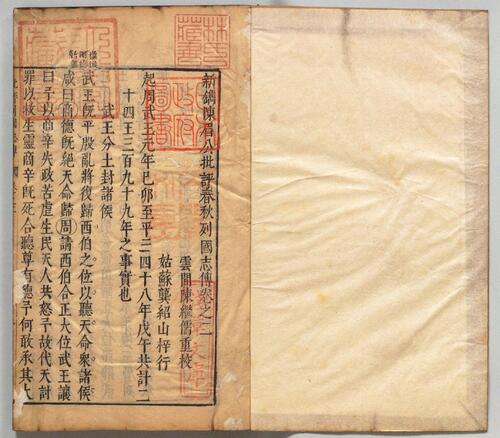 新鐫陳眉公批評春秋列國志傳卷之二
雲間陳繼儒重校
姑蘇龔紹山梓行
起周武王元年己卯至平王四十八年戊午共計二
十四王三百九十九年之事實也
武王分土封諸侯
武王既平殷亂將復歸西伯之位以聽天命衆諸侯
咸曰商德既絕天命歸周請西伯合正大位武王讓
曰予以商辛失政苦虐生民天人共怒予故代天討
罪以救生靈商辛既死合聽尊有德予何敢承其大